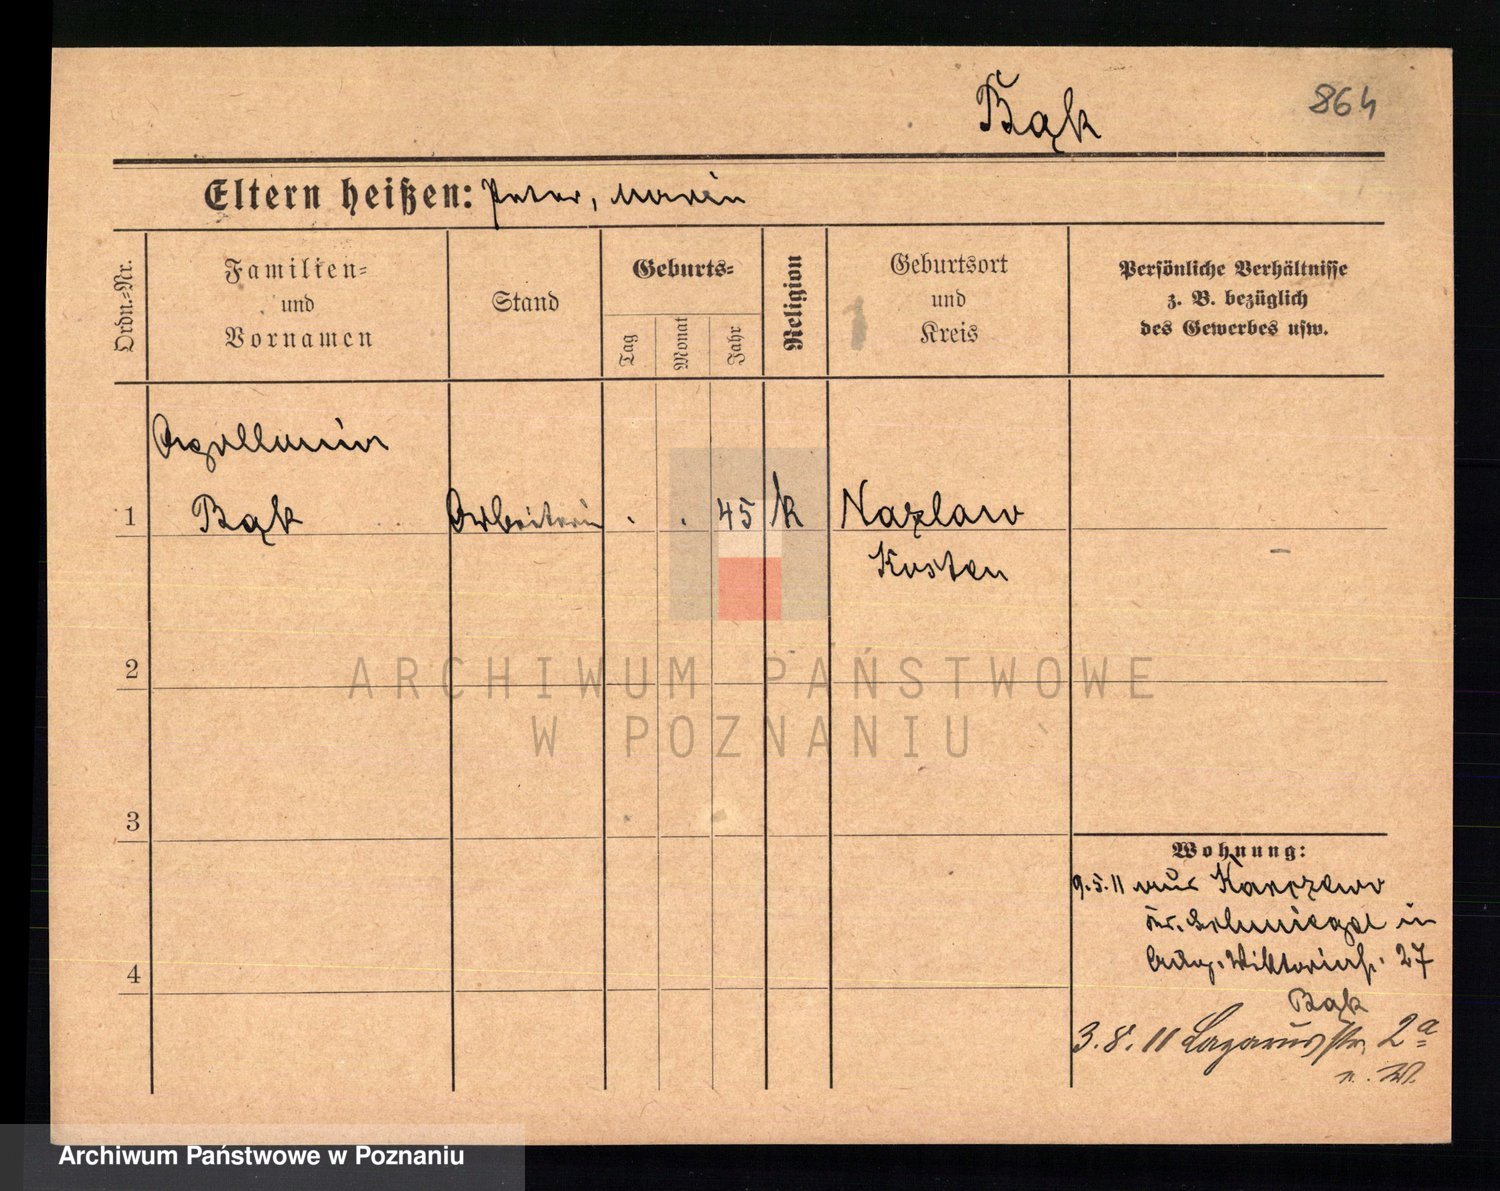 Bąk
864
Eltern heißen: Peter, Marie
Ordn.-Nr.
Familien-
und
Vornamen
Stand
Geburts-
Tag
Monat
Jahr
Religion
Geburtsort
und
Kreis
Persönliche Verhältnisse
z. B. bezüglich
des Gewerbes usw.
Apollonia
1 Bąk Arbeiterin . . 45 k Nazlaw
Kosten
2
ARCHIWUM PAŃSTWOWE
W POZNANIU
3
4
Wohnung:
9.5.11 aus Karczewo
Kr. Schmiegel in
Aug. Wiktoriastr. 27
Bąk
3.8.11 Lazarusstr. 2a
n. W.
Archiwum Państwowe w Poznaniu